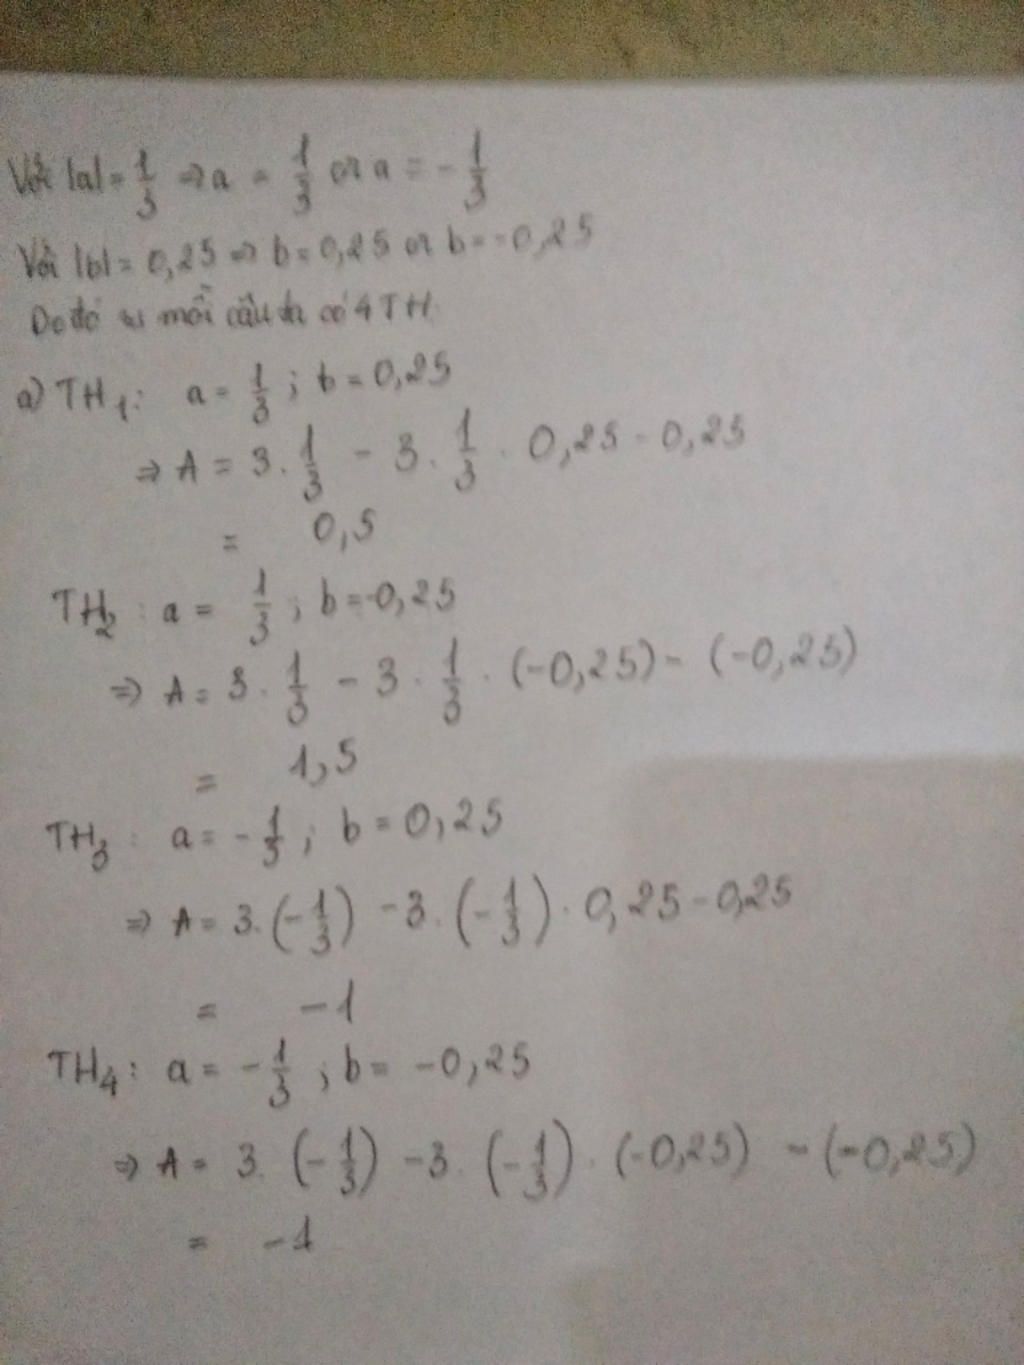 Với |a| = 1/3 => a = 1/3 or a = -1/3
Với |b| = 0,25 => b = 0,25 or b = -0,25
Do đó mỗi câu ta có 4 TH
a) TH1: a = 1/3 ; b = 0,25
=> A = 3 . 1/3 - 3 . 1/3 . 0,25 - 0,25
= 0,5
TH2 : a = 1/3 ; b = -0,25
=> A = 3 . 1/3 - 3 . 1/3 . (-0,25) - (-0,25)
= 1,5
TH3 : a = -1/3 ; b = 0,25
=> A = 3. (-1/3) - 3. (-1/3) . 0,25 - 0,25
= -1
TH4 : a = -1/3 ; b = -0,25
=> A = 3. (-1/3) - 3. (-1/3) . (-0,25) - (-0,25)
= -1